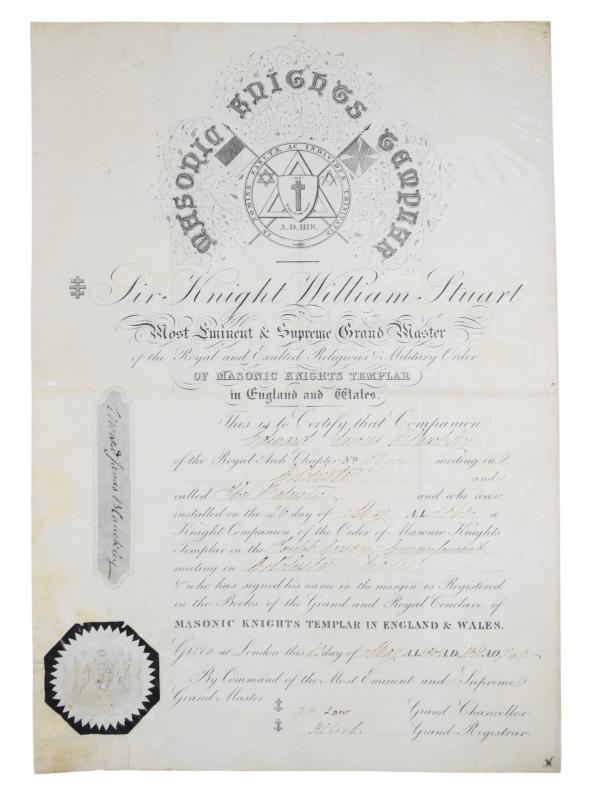 MASONIC KNIGHTS TEMPLAR
IN NOMINE SANCTÆ AC INDIVIDUÆ TRINITATIS
A.D. 1118.
Sir Knight William Stuart
Most Eminent & Supreme Grand Master
of the Royal and Exalted Religious & Military Order
OF MASONIC KNIGHTS TEMPLAR
in England and Wales.
This is to Certify, that Companion
Edward James Blanckley
of the Royal Arch Chapter No. meeting in
Colchester and
called The and who was
installed on the 26 day of May A.L. a
Knight Companion of the Order of Masonic Knights
Templar in the Encampment
meeting in Colchester
& who has signed his name in the margin is Registered
in the Books of the Grand and Royal Conclave of
MASONIC KNIGHTS TEMPLAR IN ENGLAND & WALES.
Given at London this day of May A.L. A.D. A.O.
By Command of the Most Eminent and Supreme
Grand Master.
Law Grand Chancellor
Grand Registrar.
Edward James Blanckley